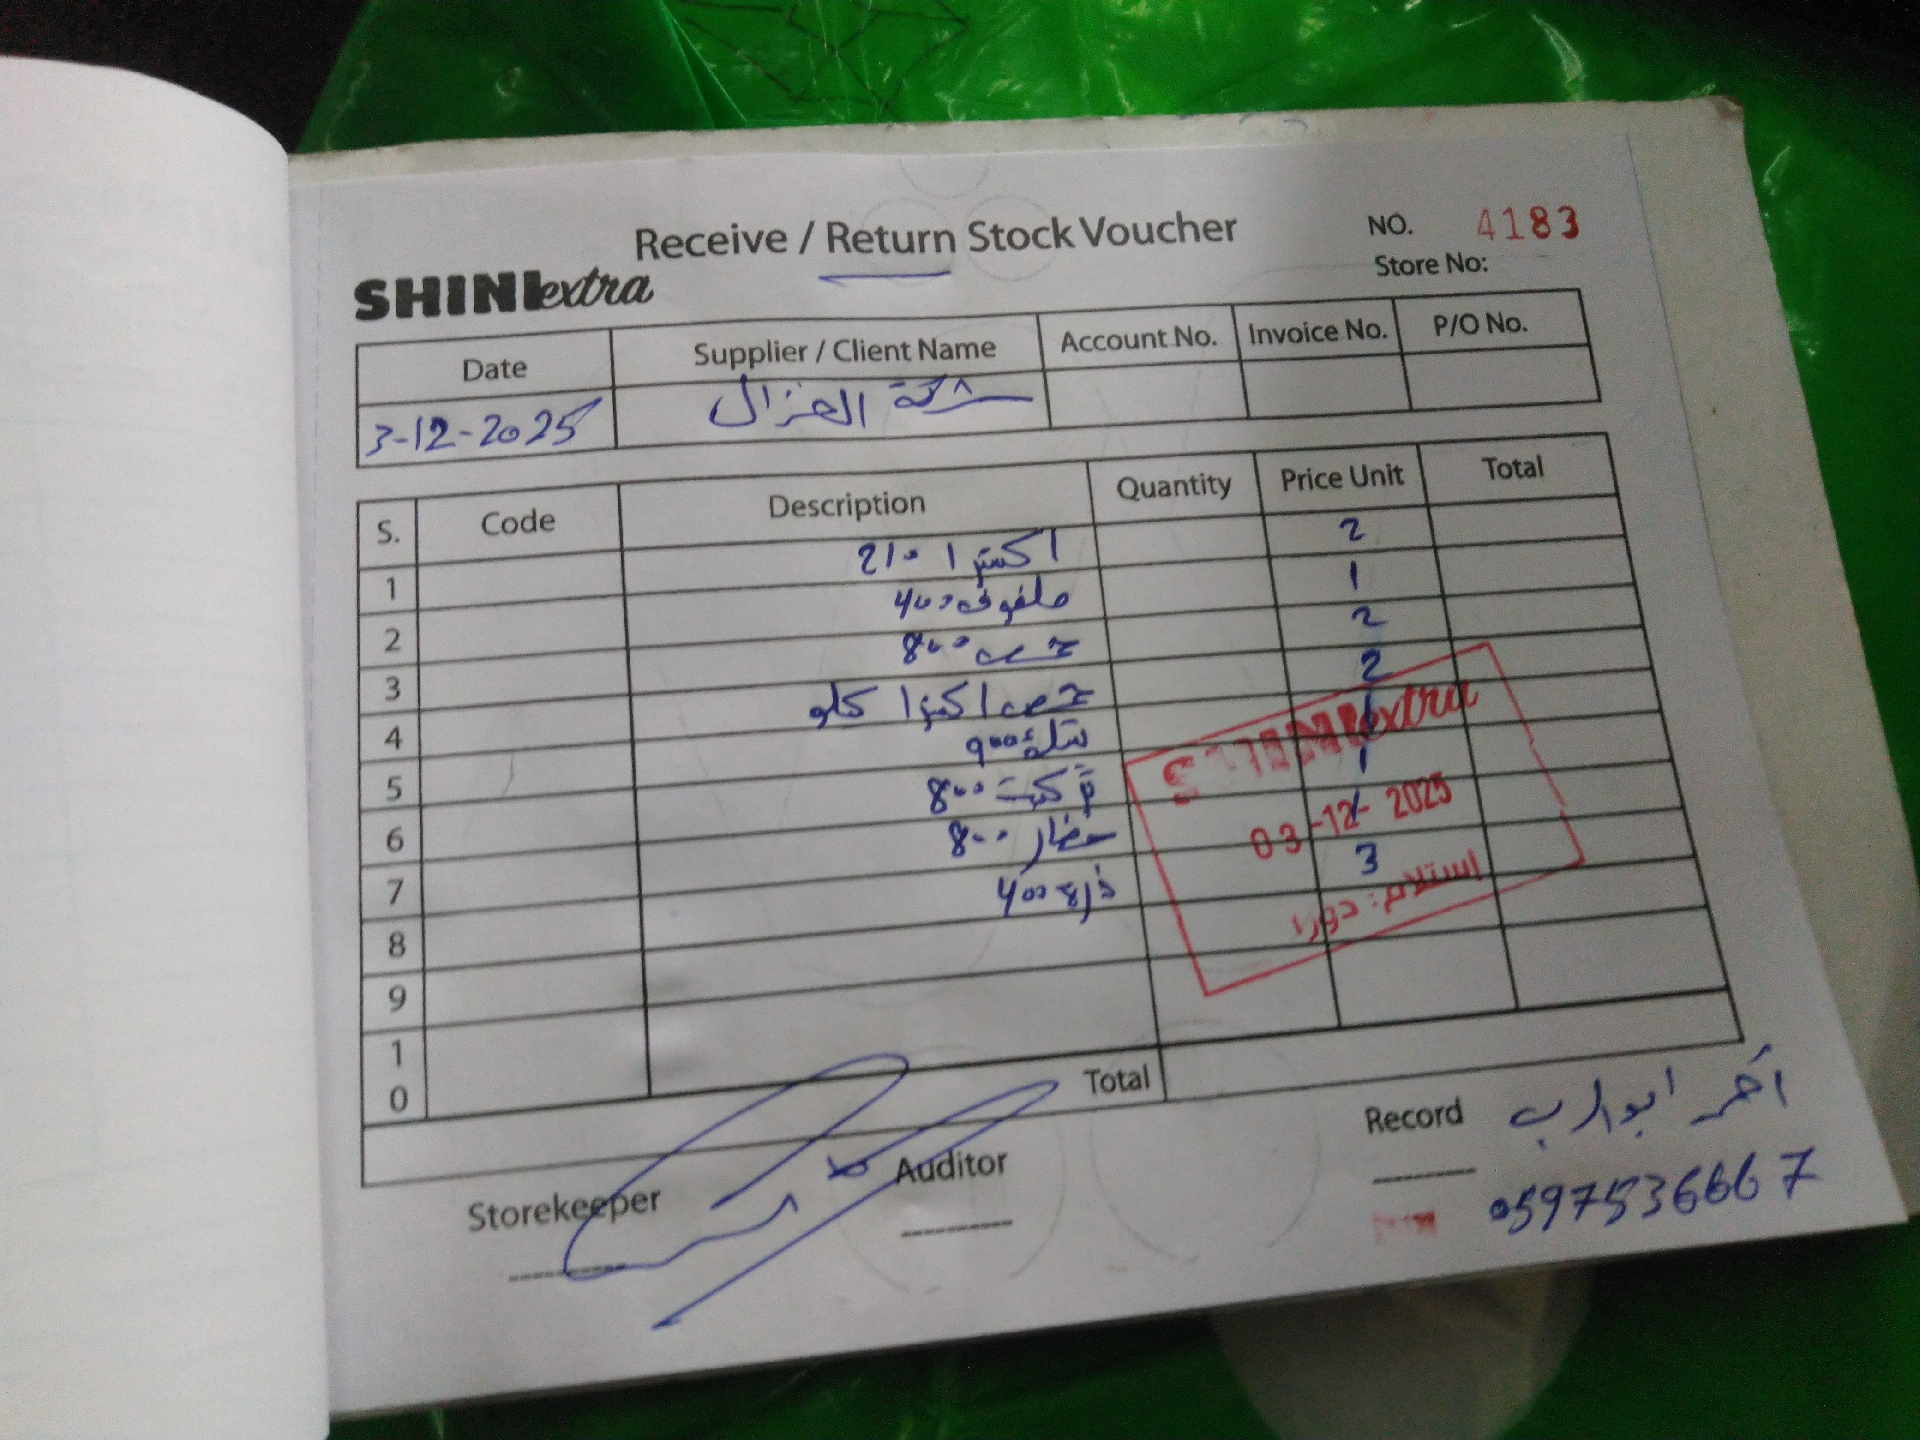 Receive / Return Stock Voucher
NO. 4183
Store No:
SHINI extra
Date Supplier / Client Name Account No. Invoice No. P/O No.
3-12-2025 شركة الغزال
S. Code Description Quantity Price Unit Total
1 اكسترا 210 2
2 ملفوف 400 1
3 حمص 800 2
4 حمص اكسترا كيلو 2
5 شلة 900 1
6 تركيت 800 1
7 حضار 800 1
8 ذرة 400 3
9
10
Total
SHINI extra
03-12-2025
استلام: دورا
Storekeeper
Auditor
Record
ابو الرب
0597536667